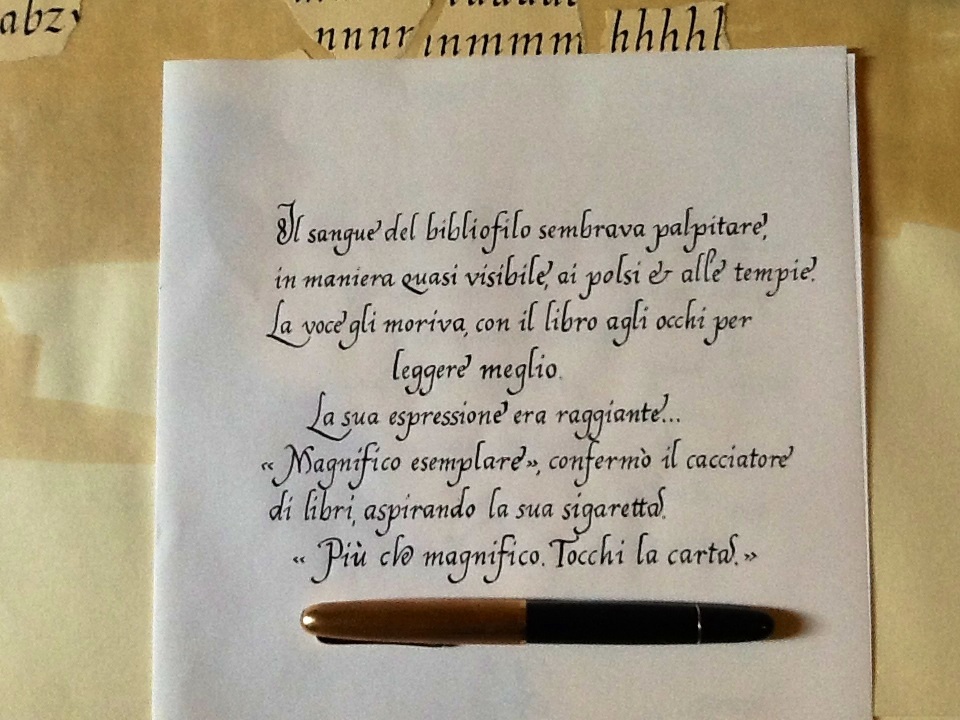 abzy
nnnr
inmmm
hhhhl
Il sangue del bibliofilo sembrava palpitare,
in maniera quasi visibile, ai polsi & alle tempie.
La voce gli moriva, con il libro agli occhi per
leggere meglio.
La sua espressione era raggiante...
« Magnifico esemplare», confermò il cacciatore
di libri, aspirando la sua sigaretta.
« Più che magnifico. Tocchi la carta. »